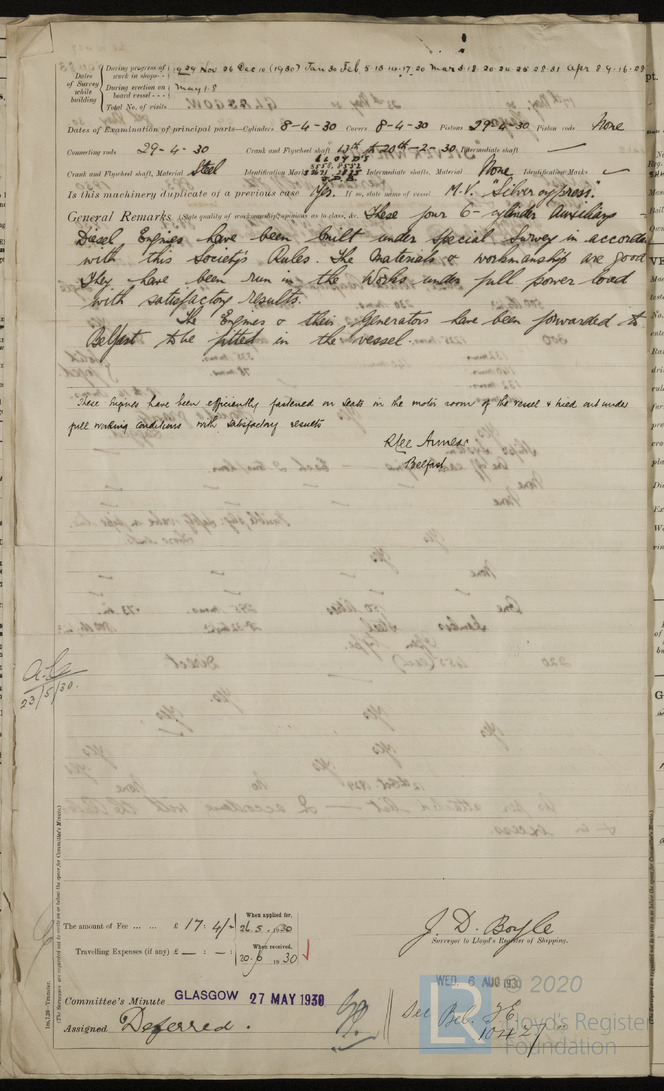 Dates of Survey while building
During progress of work in shops - - 1929 Nov 26 Dec 10 (1930) Jan 30 Feb. 5. 13. 14. 17. 20 Mar 3. 18. 20. 24. 25. 28. 31 Apr 8. 9. 16. 28
During erection on board vessel - - - May 1. 8
Total No. of visits
Dates of Examination of principal parts—Cylinders 8-4-30 Covers 8-4-30 Pistons 29-4-30 Piston rods None
Connecting rods 29-4-30 Crank and Flywheel shaft 13th & 20th-2-30 Intermediate shaft —
Crank and Flywheel shaft, Material Steel Identification Mark Intermediate shafts, Material None Identification Marks
Is this machinery duplicate of a previous case Yes. If so, state name of vessel M.V. "Silver cypress".
General Remarks (State quality of workmanship, opinions as to class, &c. These four 6-cylinder Auxiliary
Diesel Engines have been built under Special Survey in accordance
with this Society's Rules. The Materials & workmanship are good
They have been run in the Works under full power load
with satisfactory results.
The Engines & their Generators have been forwarded to
Belfast to be fitted in the vessel.
These Engines have been efficiently fastened on seats in the motor room of the vessel & tried out under
full working conditions with satisfactory results
Belfast
23/5/30.
The amount of Fee ... ... £ 17 : 4/-
When applied for, 26.5.1930
Travelling Expenses (if any) £ — : — :
When received, 20.6.1930
J. D. Boyle
Surveyor to Lloyd's Register of Shipping.
WED. 6 AUG 1930
© 2020
Committee's Minute GLASGOW 27 MAY 1930
Assigned Deferred.
See Bel. F.E. 10427
Lloyd's Register
Foundation